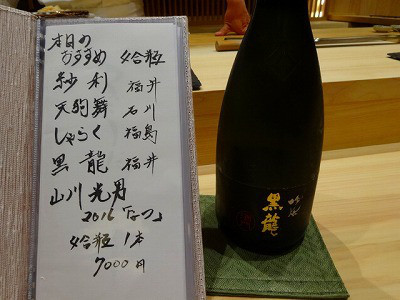 本日の
おすすめ 4合瓶
紗利 福井
天狗舞 石川
しゃらく 福島
黒龍 福井
山川光男
2016「なつ」
4合瓶 1本
7000円
黒龍
吟風